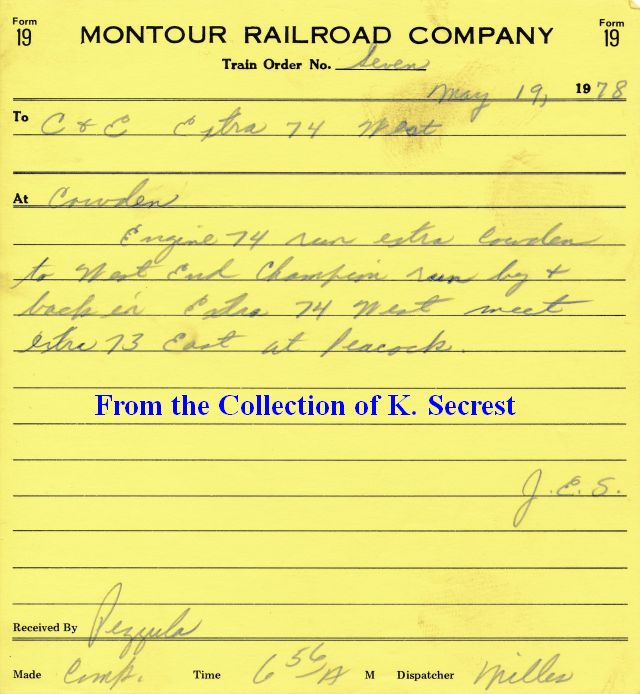 Form 19 MONTOUR RAILROAD COMPANY Form 19
Train Order No. Seven
May 19, 1978
To C & E Extra 74 West
At Cowden
Engine 74 run extra Cowden
to West End Champion run by &
back in Extra 74 West meet
extra 73 East at Peacock.
From the Collection of K. Secrest
J.E.S.
Received By Pezzula
Made Comp. Time 6 56 A M Dispatcher Miller